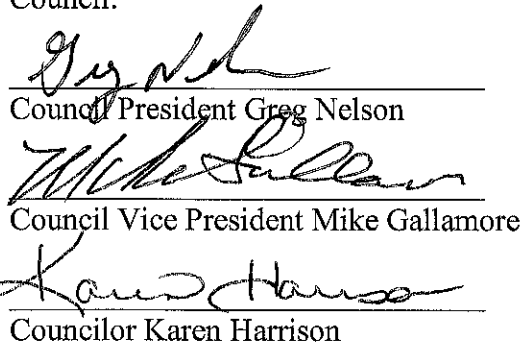 Council:
Greg Nelson
Council President Greg Nelson
Mike Gallamore
Council Vice President Mike Gallamore
Karen Harrison
Councilor Karen Harrison